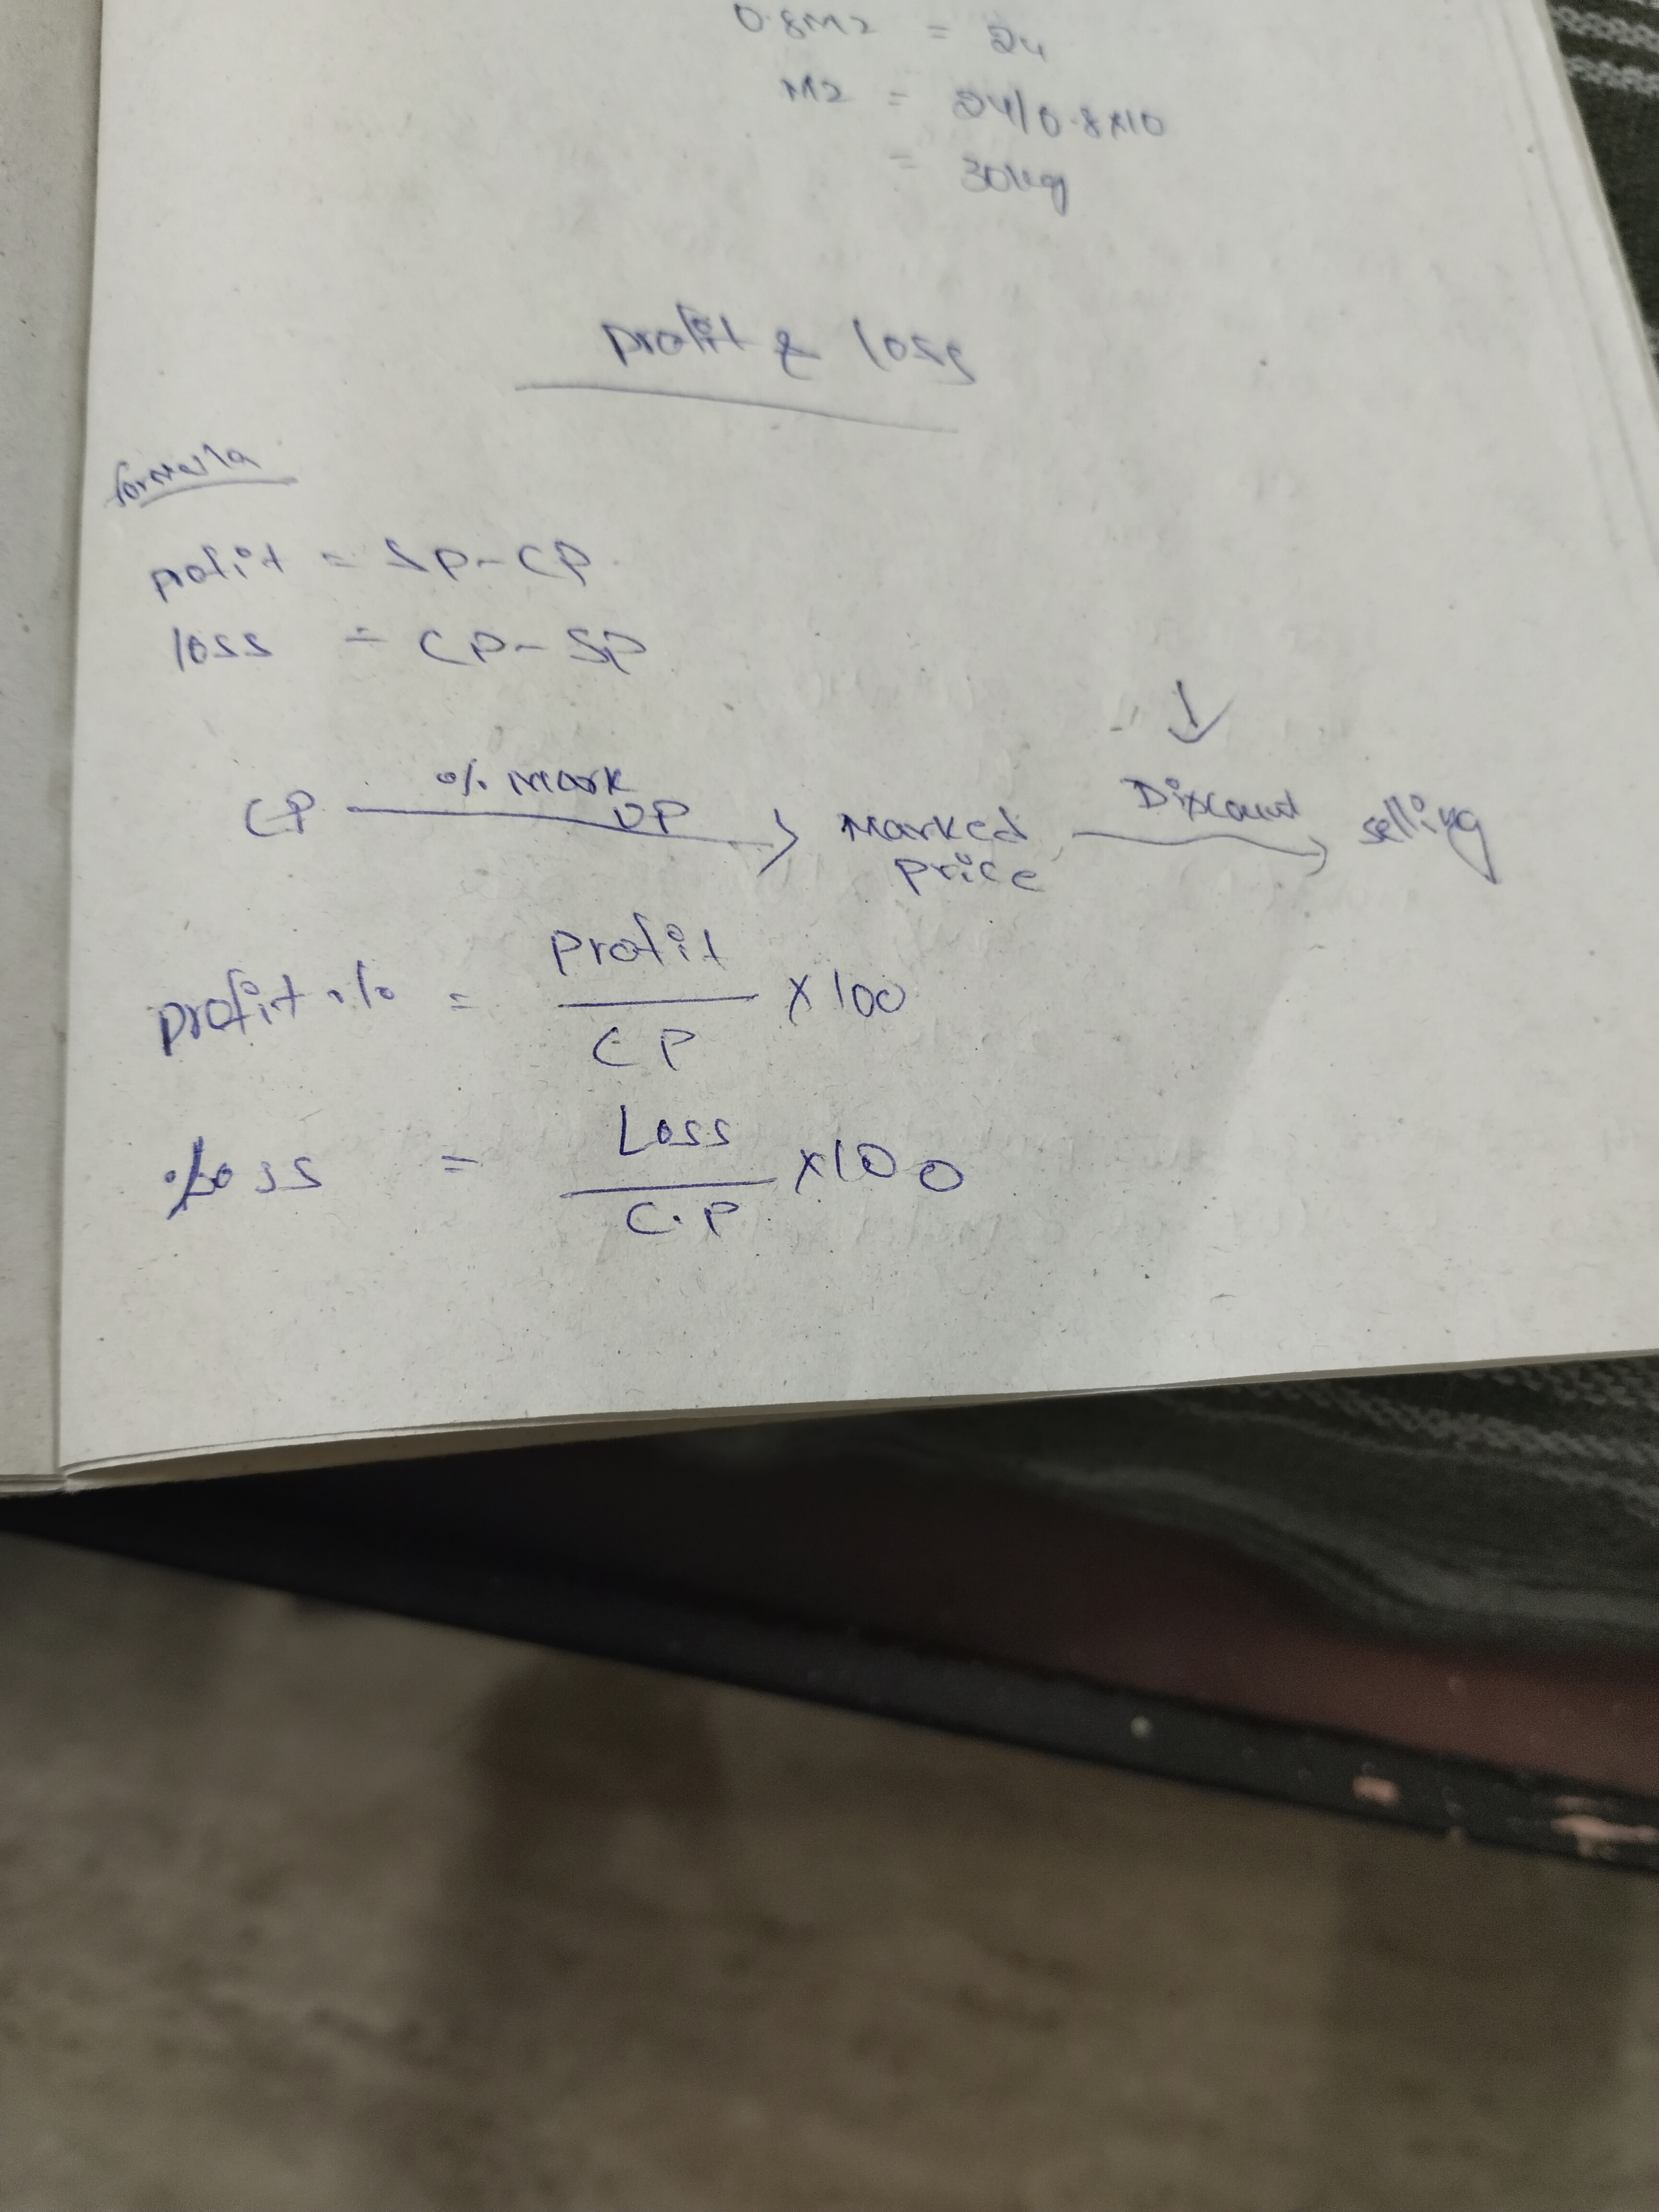 0.8M2 = 24
M2 = 24/0.8×10
= 30kg
profit & loss
formula
profit = SP-CP
loss = CP-SP
↓
CP % mark UP → Marked price Discount → selling
profit % = profit / CP × 100
% loss = Loss / C.P × 100